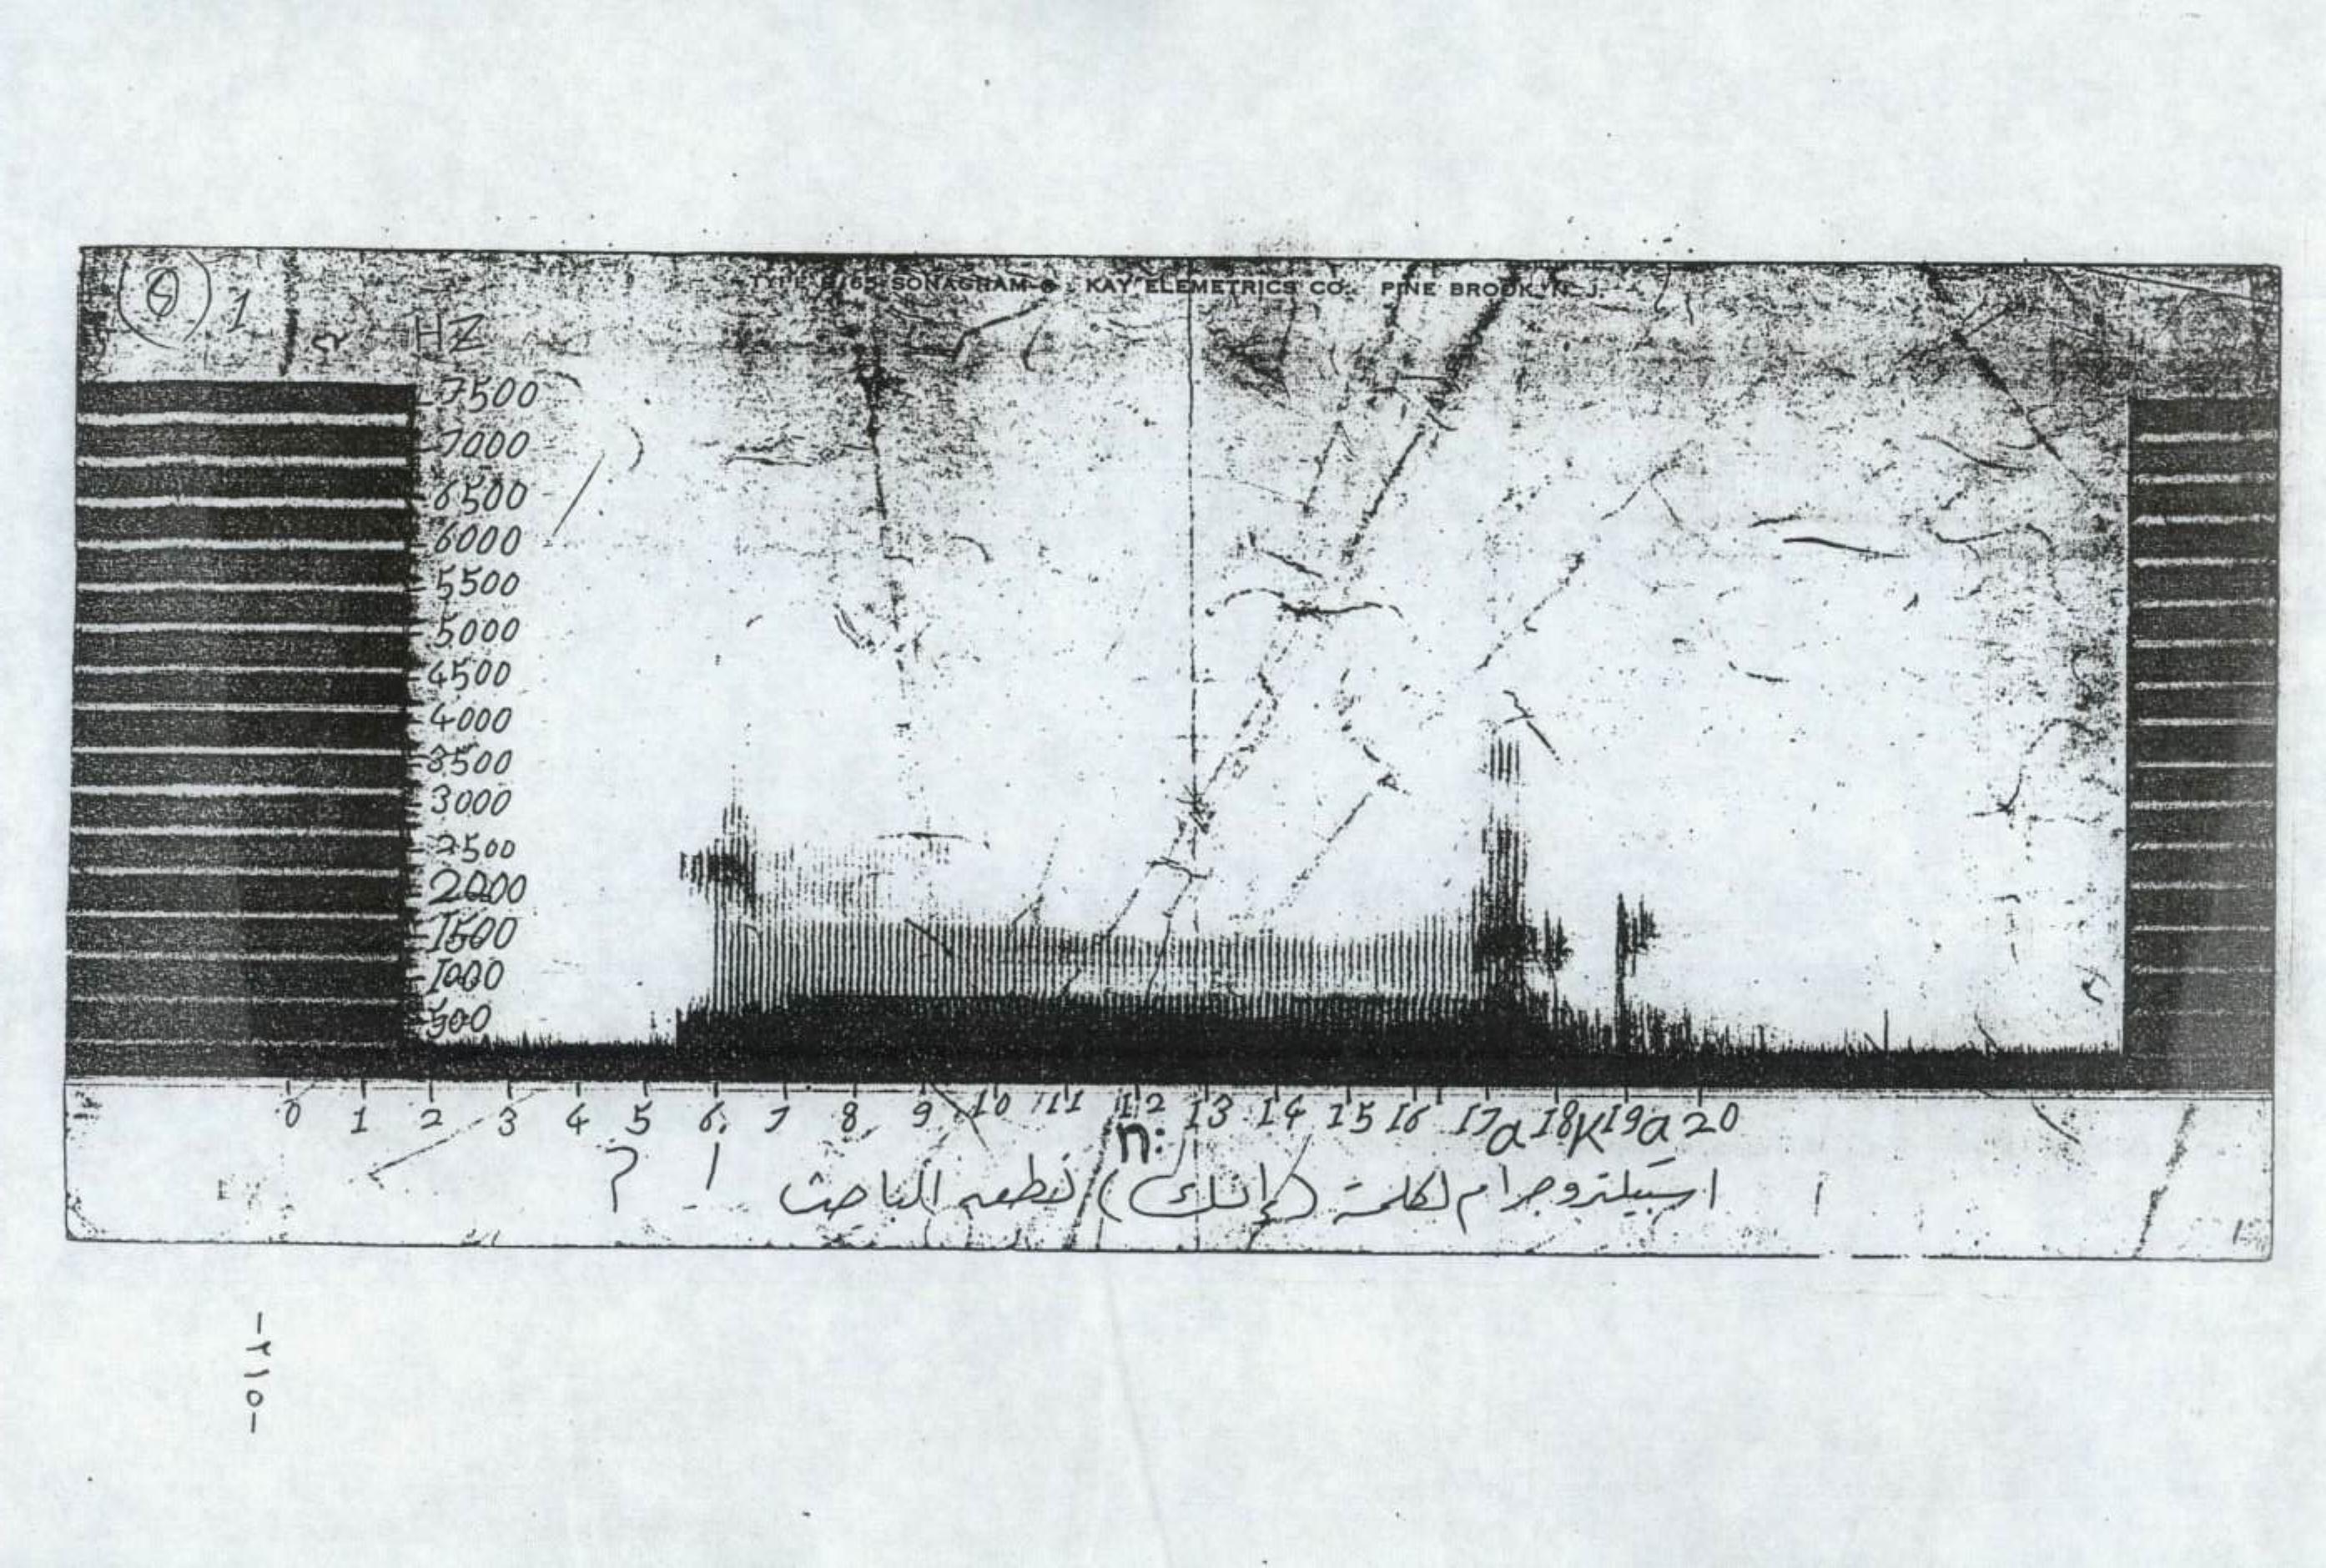 TYPE B/65 SONAGRAM ® KAY ELEMETRICS CO. PINE BROOK, N. J.
1
HZ
7500
7000
6500
6000
5500
5000
4500
4000
3500
3000
2500
2000
1500
1000
500
0 1 2 3 4 5 6 7 8 9 10 11 12 13 14 15 16 17 18 19 20
ʔ i n: a k a
اسبيكتروجرام لكلمة (إنك) نطقه الباحث
-٢١٥-